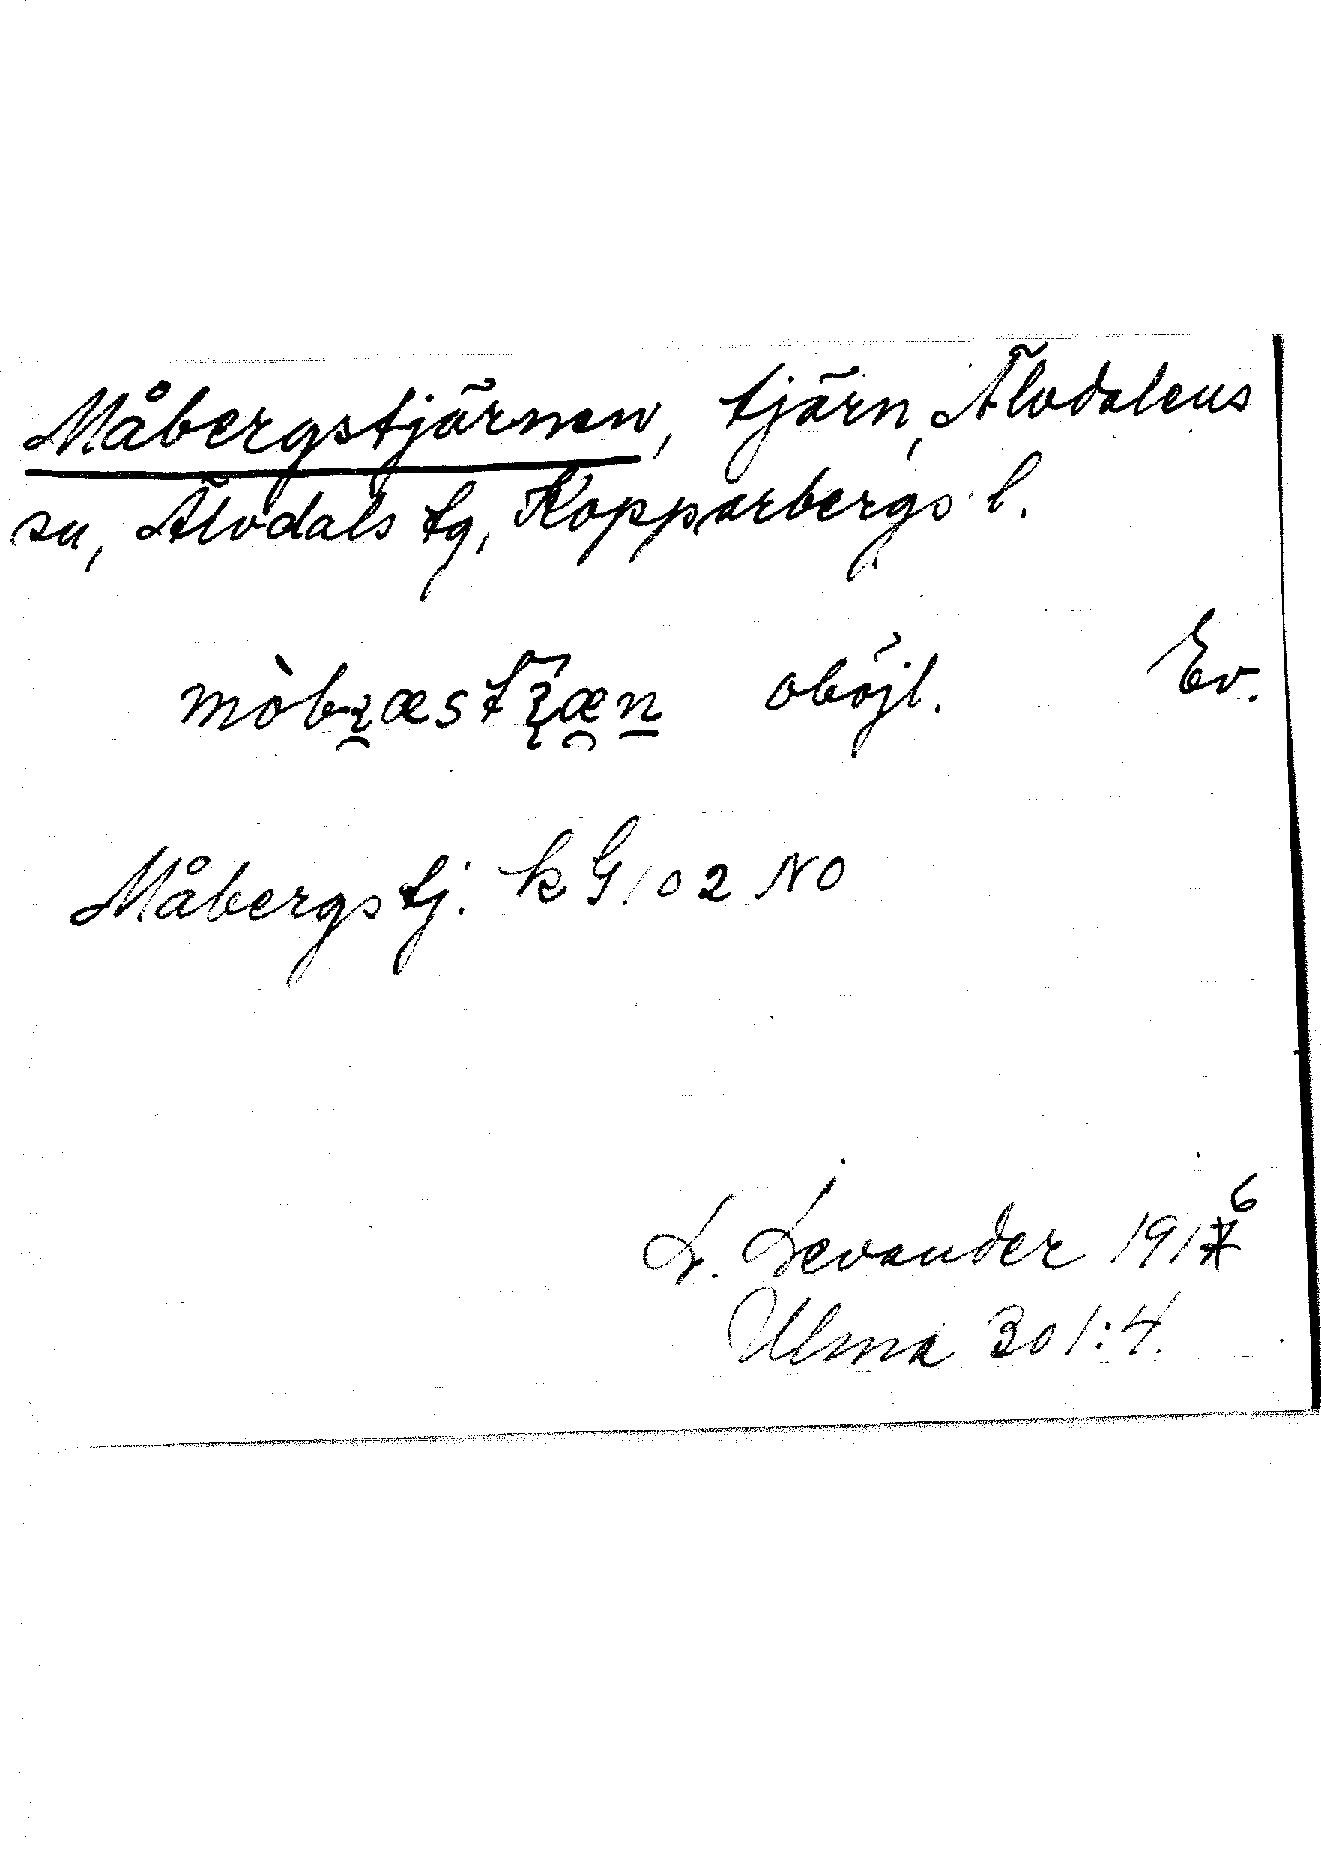 Måbergstjärnen, tjärn, Älvdalens
sn, Älvdals tg, Kopparbergs l.
oböjl. Ev.
Måbergstj. k G 102 NO
L. Levander 1916
Ulma 301:4.